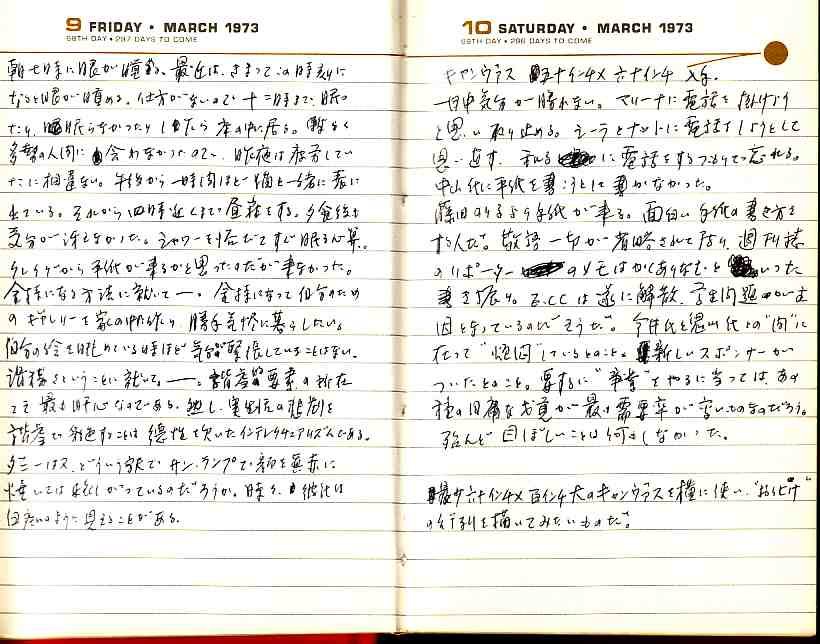 9 FRIDAY • MARCH 1973
68TH DAY • 297 DAYS TO COME
朝七時に眼が醒める。最近は、きまってこの時刻に
なると眼が醒める。仕方がないので十二時まで、眠っ
たり、眠らなかったりしながら床の中に居る。
多勢の人間に会わなかったのに、昨夜は
たに相違ない。午後から一時間ほど猫と一緒に表に
出ている。それから四時近くまで昼寝をする。夕食後も
気分が冴えなかった。シャワーを浴びてすぐ眠る
から手紙が来るかと思ったのだが来なかった。
金持になる方法に就いて一。金持になって自分のため
のギャラリーを家の中に作り、勝手気侭に暮らしたい。
自分の絵を眺めている時ほど気が緊張していることはない。
諧謔ということに就いて。一。諧謔の要素の所在
こそ最も肝心なのである。然し、の悲劇を
諧謔で することは徳性を欠いたインテレクチュアリズムである。
タミーはス、どういう訳でサン・ランプで顔を真赤に
焼いては しがっているのだろうか。時々、彼は
白痴のように見えることがある。
10 SATURDAY • MARCH 1973
69TH DAY • 296 DAYS TO COME
キャンヴァス 五十インチ×六十インチ
一日中気分が勝れない。マリーナに電話を掛けよう
と思い取り止める。シーラとナットに電話をしようとして
思い直す。に電話をするつもりで忘れる。
中山氏に手紙を書こうとして書かなかった。
篠田のりるより手紙が来る。面白い手紙の書き方を
する人だ。敬語一切が省略されており、週刊誌
のリポーターのメモはかくありなむといった
書き振り。E.C.C.は遂に解散、学生問題が主
因となっているのだそうだ。今井氏と 氏との"間"に
在って"煩悶"しているとのこと。新しいスポンサーが
ついたとのこと。要するに"事業"をやるに当っては、ある
種の が最も需要率が高いものなのだろう。
殆んど目ぼしいことは何もしなかった。
最少六十インチ×百インチ大のキャンヴァスを横に使い、"お化け"
の行列を描いてみたいものだ。